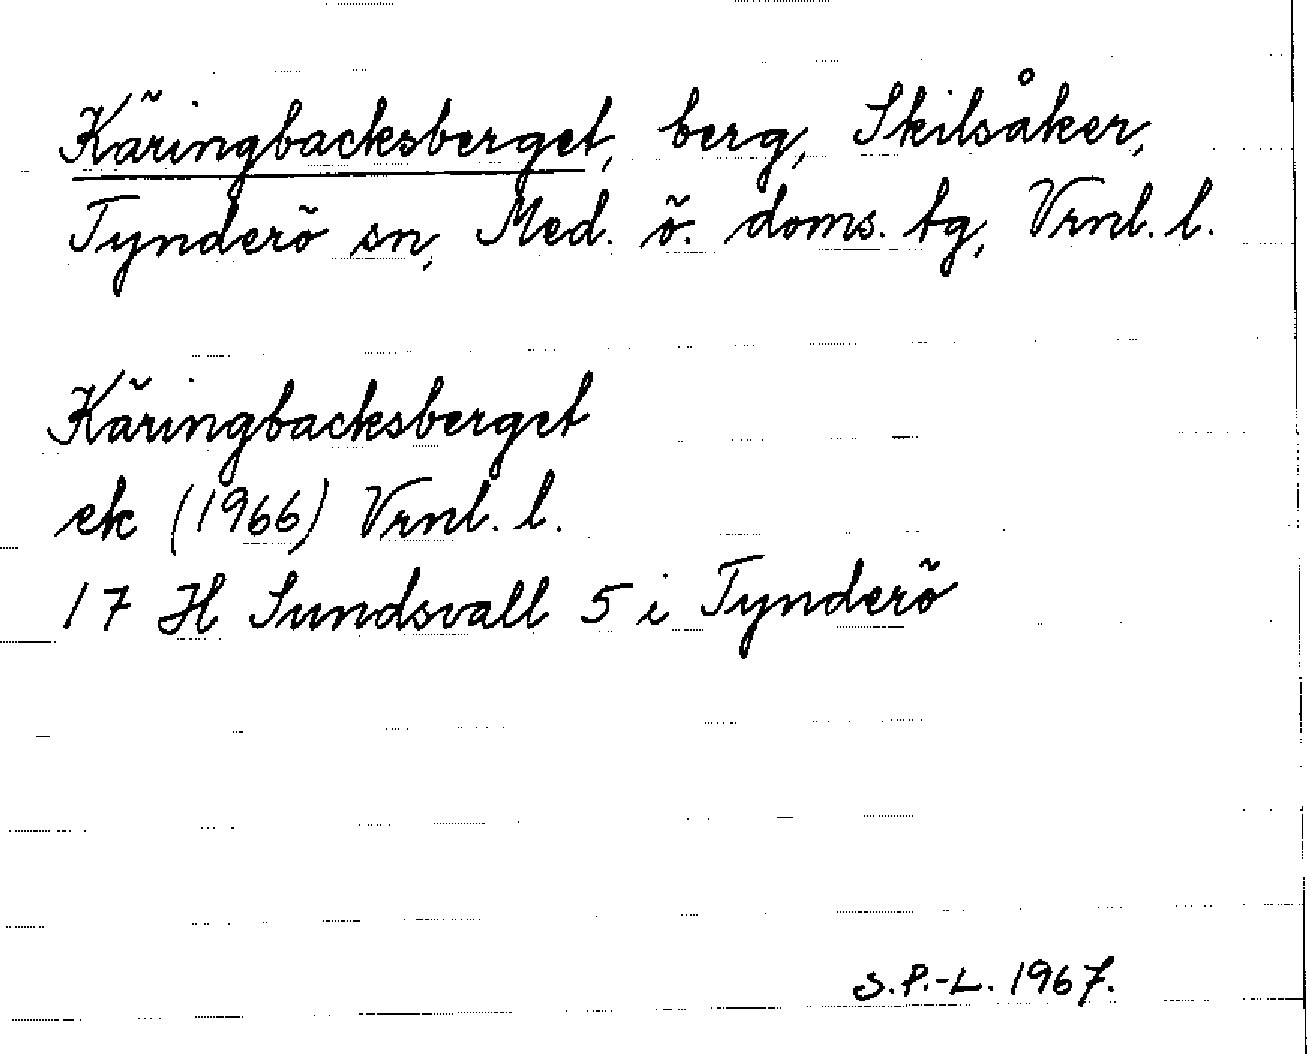 Käringbacksberget, berg, Skilsåker,
Tynderö sn, Med. ö. doms. tg, Vrnl. l.
Käringbacksberget
ek (1966) Vrnl. l.
17 H Sundsvall 5 i Tynderö
S.P.-L. 1967.